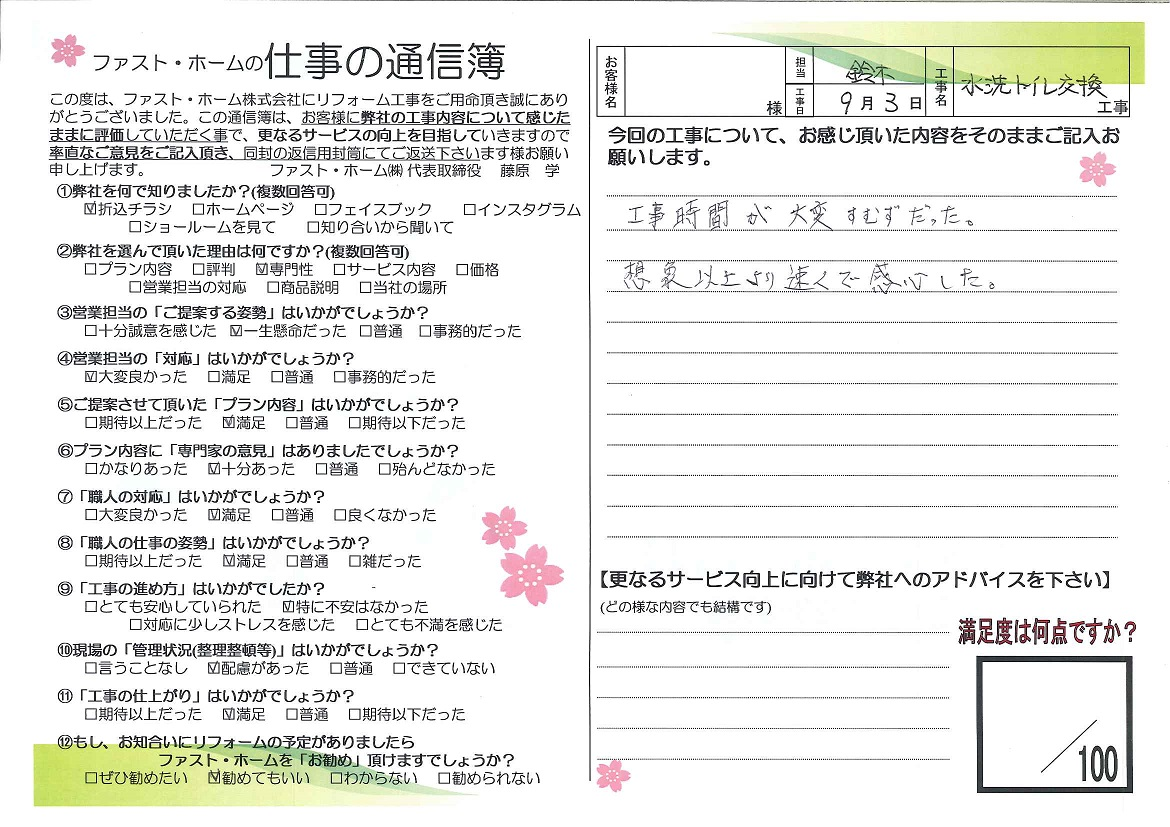 ファスト・ホームの仕事の通信簿
この度は、ファスト・ホーム株式会社にリフォーム工事をご用命頂き誠にあり
がとうございました。この通信簿は、お客様に弊社の工事内容について感じた
ままに評価していただく事で、更なるサービスの向上を目指していきますので
率直なご意見をご記入頂き、同封の返信用封筒にてご返送下さいます様お願い
申し上げます。 ファスト・ホーム㈱ 代表取締役 藤原 学
①弊社を何で知りましたか？(複数回答可)
☑折込チラシ □ホームページ □フェイスブック □インスタグラム
□ショールームを見て □知り合いから聞いて
②弊社を選んで頂いた理由は何ですか？(複数回答可)
□プラン内容 □評判 ☑専門性 □サービス内容 □価格
□営業担当の対応 □商品説明 □当社の場所
③営業担当の「ご提案する姿勢」はいかがでしょうか？
□十分誠意を感じた ☑一生懸命だった □普通 □事務的だった
④営業担当の「対応」はいかがでしょうか？
☑大変良かった □満足 □普通 □事務的だった
⑤ご提案させて頂いた「プラン内容」はいかがでしょうか？
□期待以上だった ☑満足 □普通 □期待以下だった
⑥プラン内容に「専門家の意見」はありましたでしょうか？
□かなりあった ☑十分あった □普通 □殆んどなかった
⑦「職人の対応」はいかがでしょうか？
□大変良かった ☑満足 □普通 □良くなかった
⑧「職人の仕事の姿勢」はいかがでしょうか？
□期待以上だった ☑満足 □普通 □雑だった
⑨「工事の進め方」はいかがでしたか？
□とても安心していられた ☑特に不安はなかった
□対応に少しストレスを感じた □とても不満を感じた
⑩現場の「管理状況(整理整頓等)」はいかがでしょうか？
□言うことなし ☑配慮があった □普通 □できていない
⑪「工事の仕上がり」はいかがでしょうか？
□期待以上だった ☑満足 □普通 □期待以下だった
⑫もし、お知合いにリフォームの予定がありましたら
ファスト・ホームを「お勧め」頂けますでしょうか？
□ぜひ勧めたい ☑勧めてもいい □わからない □勧められない
お客様名 様 担当 鈴木 工事日 9月3日 工事名 水洗トイレ交換 工事
今回の工事について、お感じ頂いた内容をそのままご記入お
願いします。
工事時間が大変すむずだった。
想象以上より速くで感心した。
【更なるサービス向上に向けて弊社へのアドバイスを下さい】
(どの様な内容でも結構です)
満足度は何点ですか？
／100